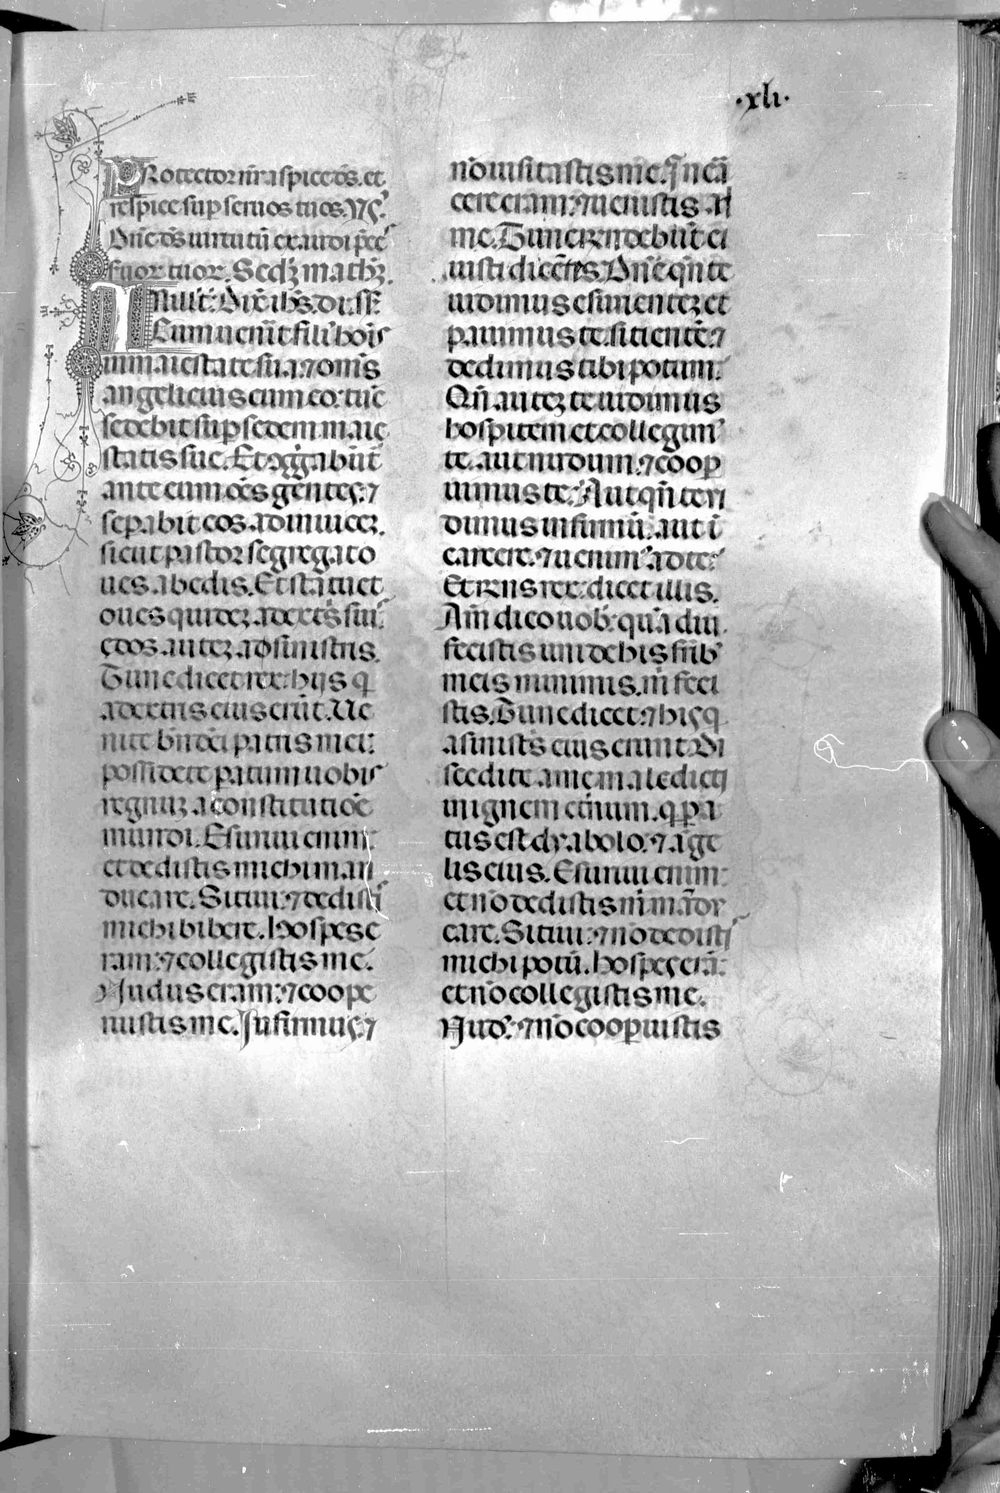 ·xlı·
Protector nr̄ aspice ds̄. et
respice sup seruos tuos. v̄s.
Dn̄e ds̄ uirtutū exaudi p̄ces
suor̄ tuor̄. Scd̄ȝ math̄ȝ.
In illo t̄. Dix̄ ih̄s. di. s̄.
Cum uenit̄ fili' hoīs
in maiestate sua: ⁊ om̄s
angeli eius cum eo: tūc
sedebit sup sedem maie
statis sue. Et ɔg̃gabūt̄
ante eum oēs gentes: ⁊
sepabit eos adinuiceȝ.
sicut pastor segregat o
ues ab edis. Et statuet
oues quideȝ a dextrs̄ suis.
edos auteȝ a sinistris.
Tunc dicet rex: hijs q̄
a dextris eius erūt. Ue
nite bn̄dc̄i patris mei:
possidete patum uobis
regnuȝ a constitutiōe
mundi. Esuriui enim:
et dedistis michi man
ducare. Sitiui: ⁊ dedistis
michi bibere. Hospes e
ram: ⁊ collegistis me.
Nudus eram: ⁊ coope
ruistis me. Infirmus: ⁊
nō uisitastis me. q̄n cā
cere eram: ⁊ uenistis ad
me. Tunc rn̄debūt̄ ei
iusti dicētes. Dn̄e qn̄ te
uidimus esurienteȝ et
pauimus te. sitientē: ⁊
dedimus tibi potum.
Qn̄ auteȝ te uidimus
hospitem et collegim'
te. aut nudum: ⁊ coop
uimus te. Aut qn̄ te ui
dimus infirmū. aut ī
carcere. ⁊ uenim' ad te:
Et rn̄s rex: dicet illis.
Am̄ dico uob̄: qua diu
fecistis uni de his frīb'
meis minimis. m̄ feci
stis. Tunc dicet: ⁊ his q̄
a sinistrs̄ eius erunt. Di
scedite a me maledicti
in ignem et̄num. q̄ pa
tus est dyabolo. ⁊ āge
lis eius. Esuriui enim:
et nō dedistis m̄ mādu
care. Sitiui: ⁊ nō dedisti
michi potū. hospes erā:
et nō collegistis me.
Nud': ⁊ nō coopuistis